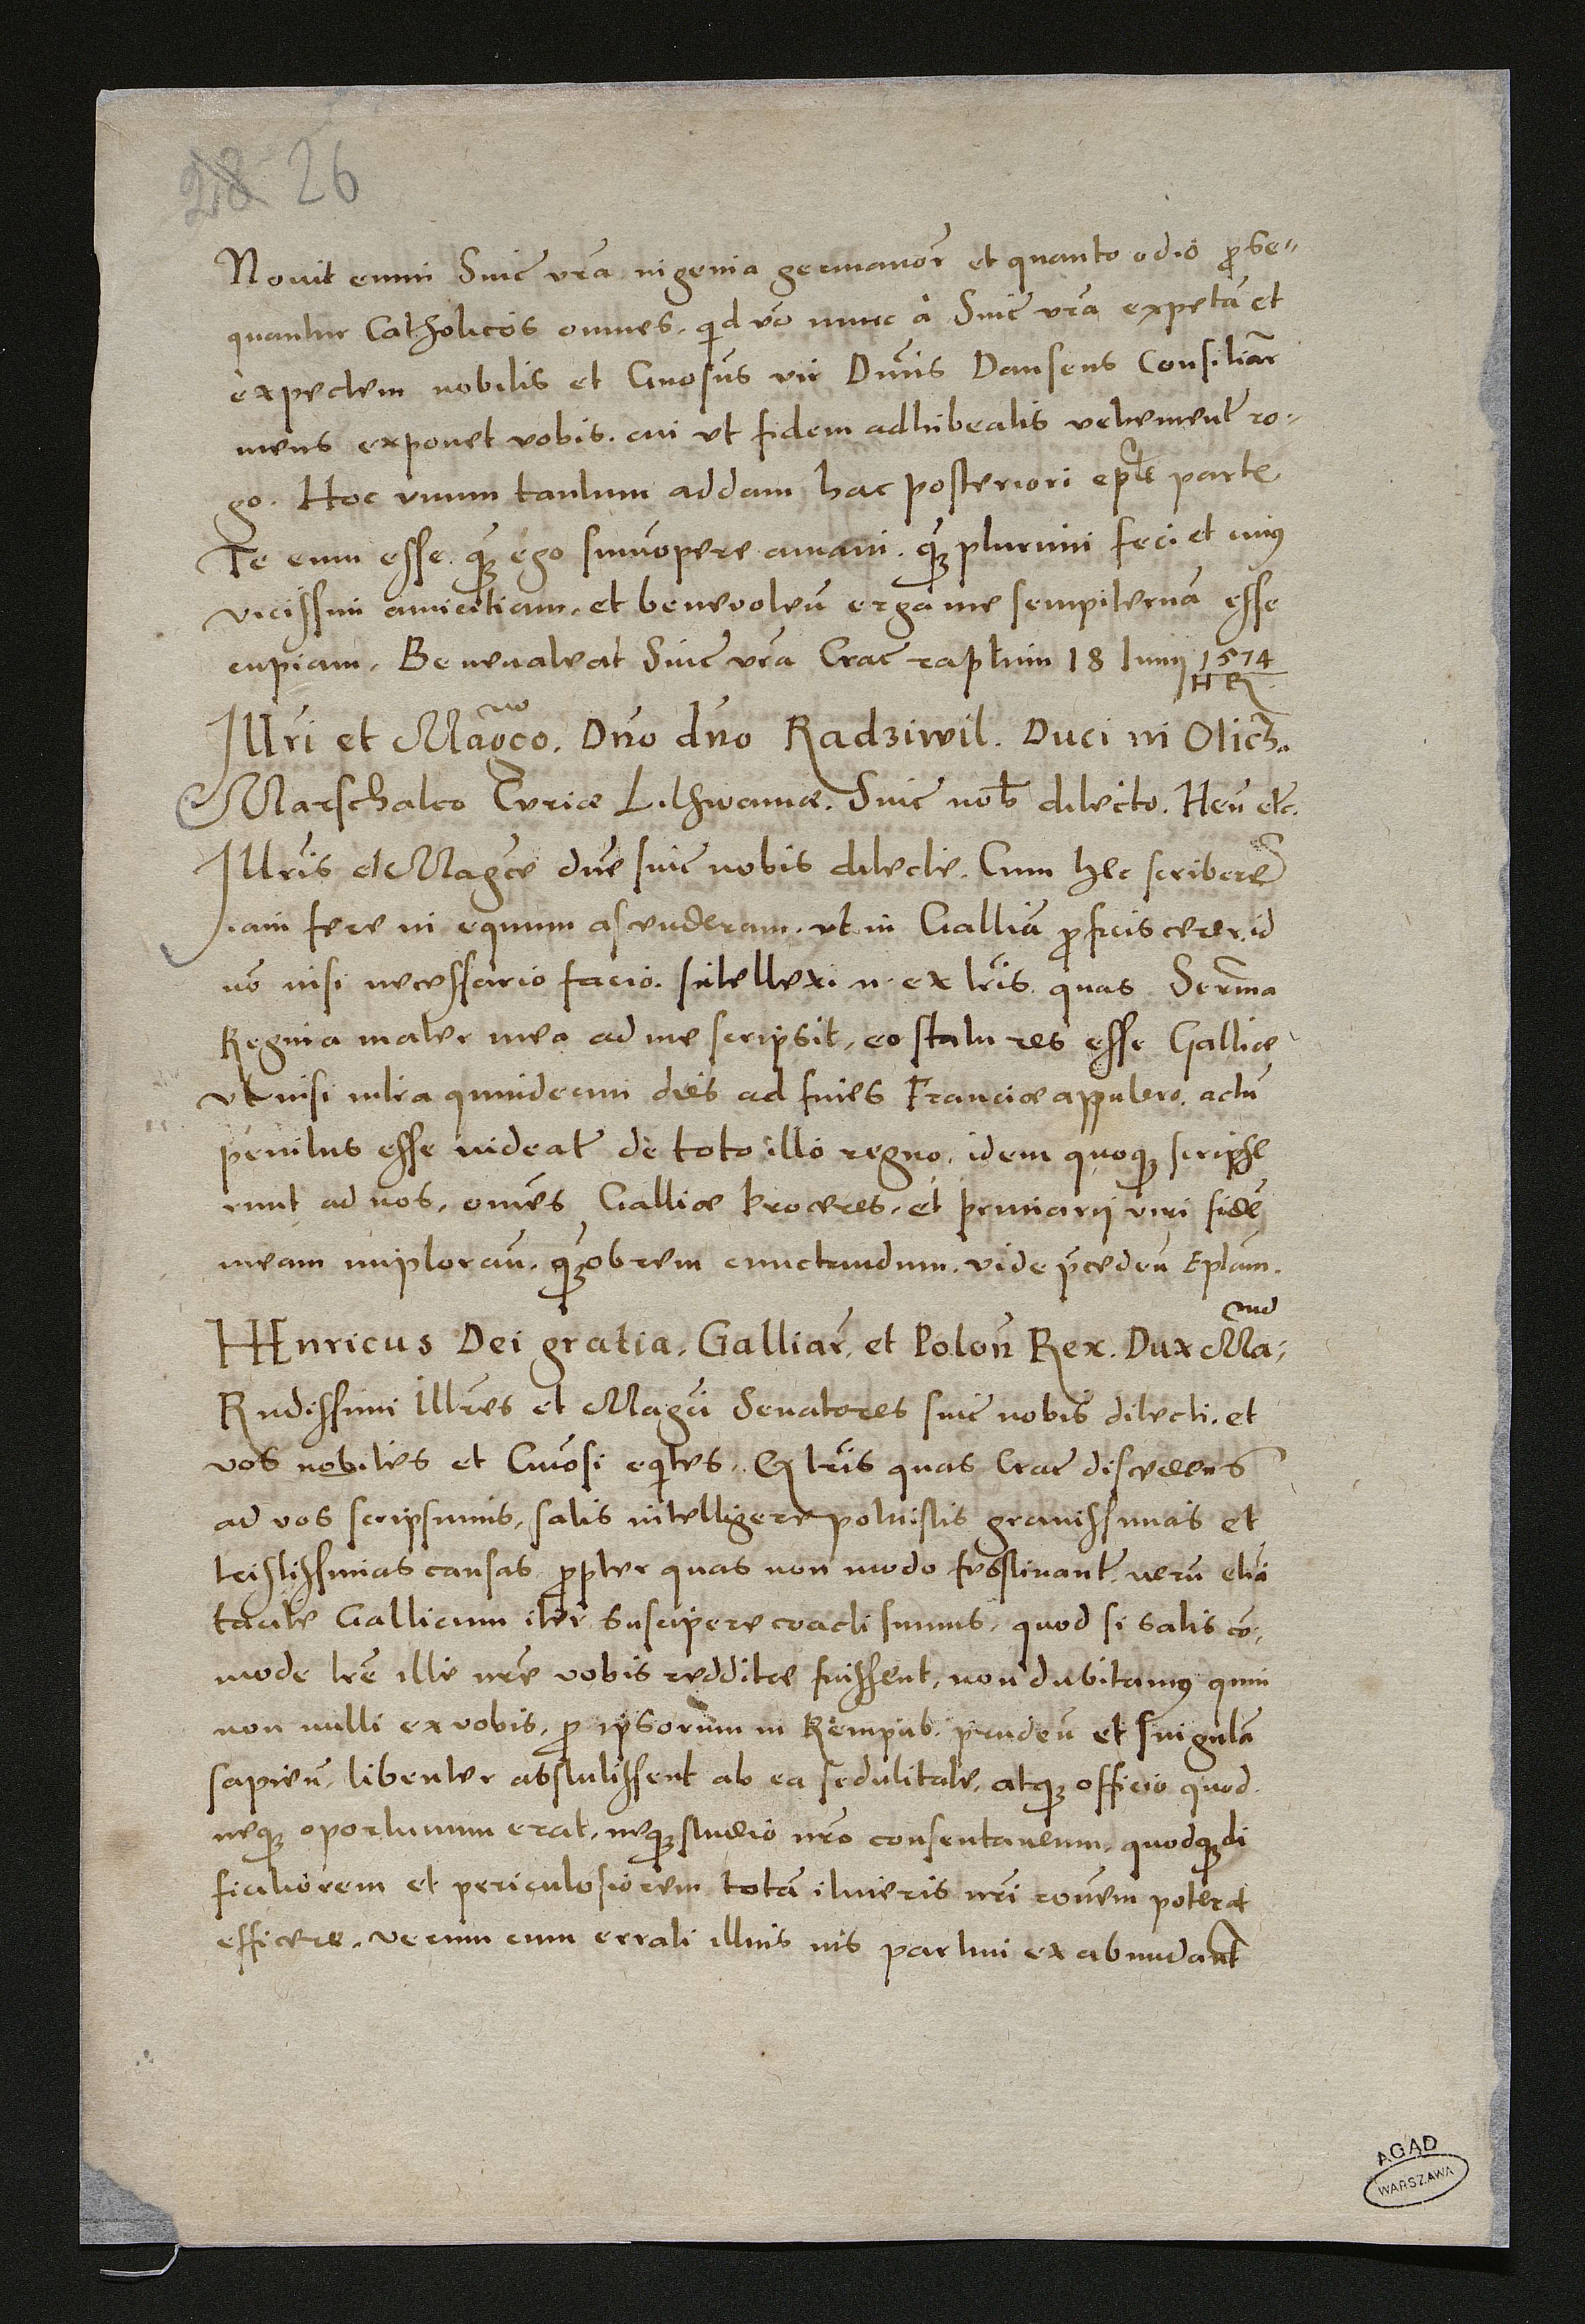 28 26
Novit enim Sinc̄ vr̄a ingenia germanor̄ et quanto odio ꝓse-
quantur Catholicos omnes. qd vō nunc à Sinc̄ vr̄a expetā et
expectem nobilis et Gn̄osus vir Dn̄us Dansens Consiliar̄
meus exponet vobis. cui vt fidem adhibeatis vehement̄ ro-
go. Hoc vnum tantum addam hac posteriori ep̄le parte
Te eum esse. quē ego sum̄opere amavi. quē plurimi feci et cuiꝰ
vicissim amicitiam, et benevoleñ erga me sempiternā esse
cupiam. Bene valeat Sinc̄ vr̄a Crac̄ raptim 18 Iunij 1574
HR
Illr̄i et Mag̃co. Dn̄o dn̄o Radziwil. Duci in Olich.
no
Marschalco Curiæ Lithwaniæ. Sinc̄ nob̄ dilecto. Heñ etc̄.
Illr̄is et Mag̃ce dn̄e sinc̄ nobis dilecte. Cum hec scriberē
iam fere in equum ascenderam. vt in Galliā ꝓficiscerer. id
nō nisi necessario facio. Intellexi n. ex lr̄is quas Serm̄a
Regina mater mea ad me scripsit, eo statu res esse Galliæ
vt nisi intra quindecim dies ad fines Franciæ appulero. actū
penitus esse videat̄ de toto illo regno. idem quoqꝫ scripse
runt ad nos. om̄es Galliæ Proceres. et primarij viri fidē
meam implorañ. quāobrem cunctandum. vide p̄cedeñ Epl̄am.
Henricus Dei gratia. Galliar̄ et Poloñ Rex. Dux Ma:
nus
Rn̄dissimi Illr̄es et Mag̃ci Senatores sinc̄ nobis dilecti. et
vos nobiles et Gn̄osi eqites. Ex lr̄is quas Crac̄ discedens
ad vos scripsimus, satis intelligere potuistis gravissimas et
tristissimas causas ꝓpter quas non modo festinant̄ verū etiā
tacite Gallicum iter suscipere coacti sumus. quod si satis cō-
mode lr̄e ille nr̄e vobis redditæ fuissent, non dubitamꝰ quin
non nulli ex vobis, ꝓ ipsorum in Rempub. prudeñ et singulā
sapieñ, libenter abstulissent ab ea sedulitate, atqꝫ officio quod
neqꝫ oportunum erat, neqꝫ studio nr̄o consentaneum, quodqꝫ di
ficiliorem et periculosiorem totā itineris nr̄i rōnem poterat
efficere. verum cum errati illius vis partim ex abundant̄
AGAD
WARSZAWA